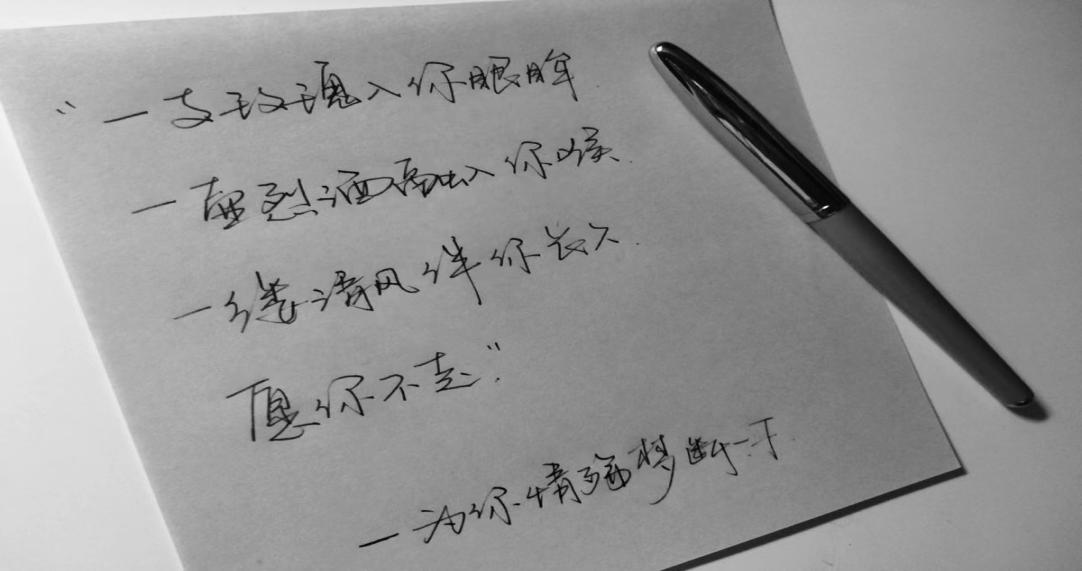 “一支玫瑰入你眼眸
一壶烈酒融入你喉.
一缕清风伴你长久.
愿你不走”
—为你情殇梦断一